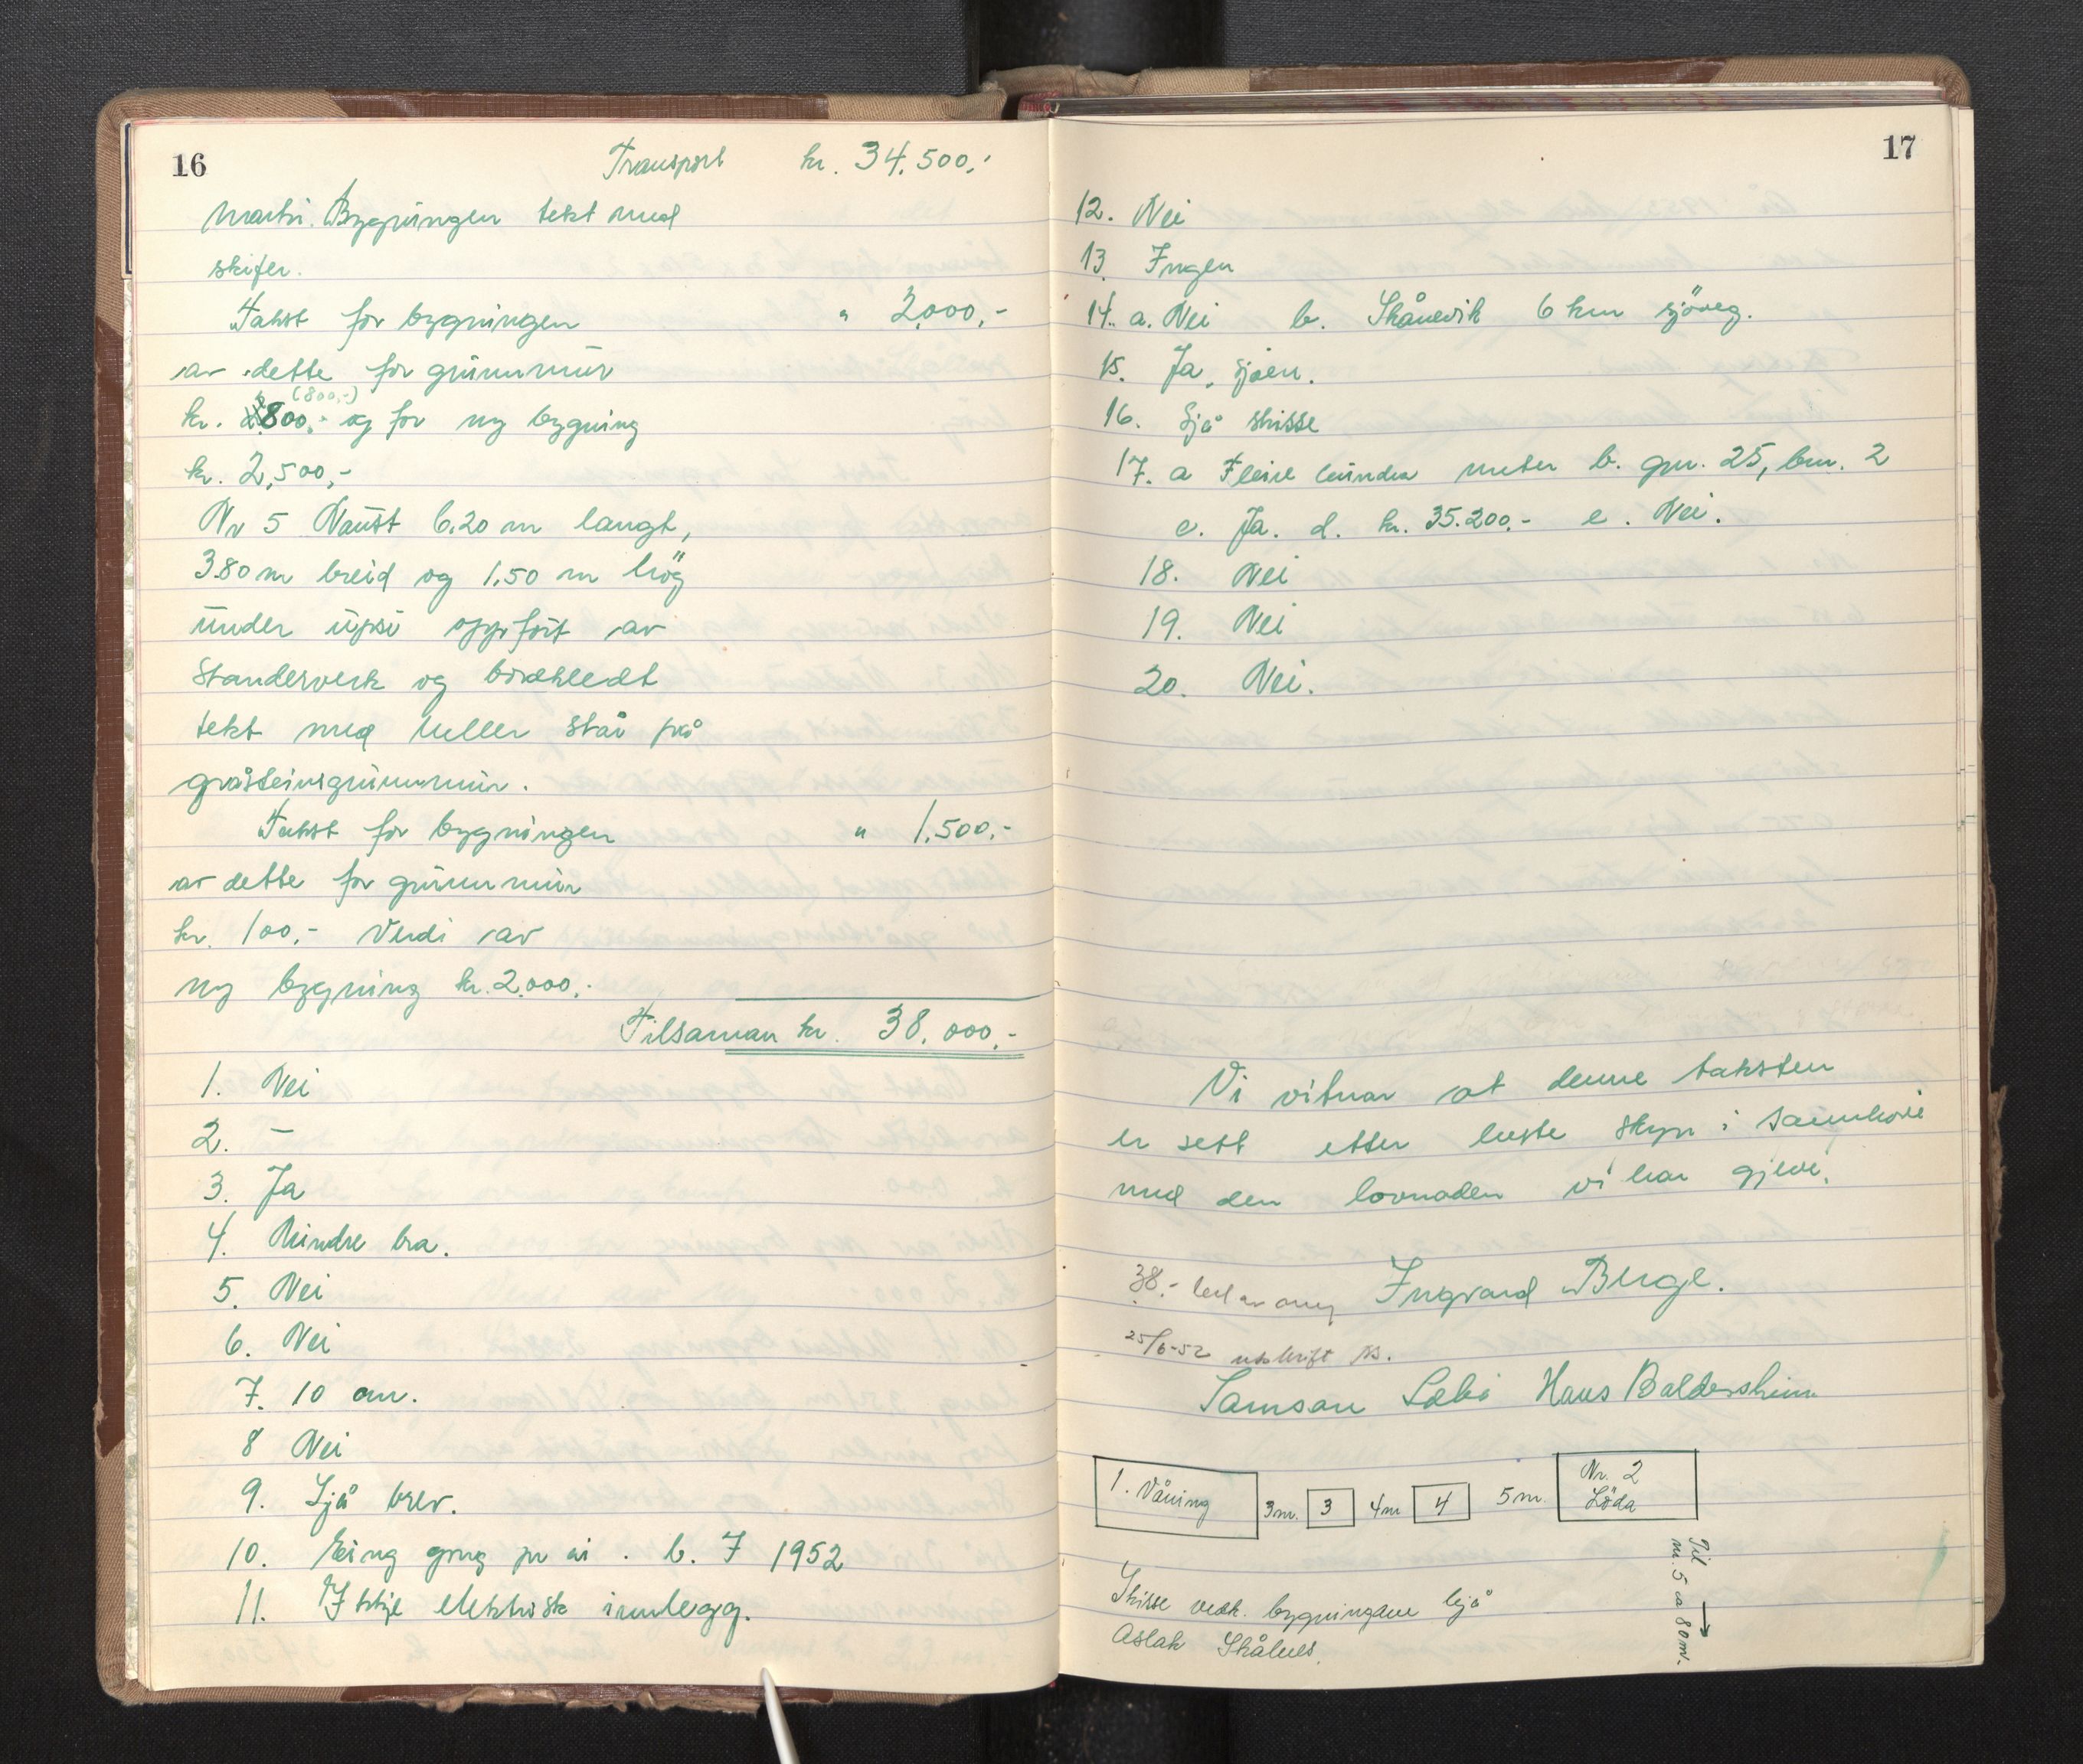 16
Transport kr. 34.500,-
mark. Bygningen tekt med
skifer.
Takst for bygningen " 2000,-
av dette for grunnmur
(800,-)
kr. 800,- og for ny bygning
kr. 2,500,-
Nr 5 Naust 6.20 m langt,
3.80 m breid og 1,50 m hög
under upsi oppfört av
Standerverk og bordkledt
tekt med heller står på
gråsteinsgrunnmur.
Takst for bygningen " 1.500.-
av dette for grunnmur
kr. 100,- Verdi av
ny bygning kr. 2.000,-
Tilsaman kr. 38.000,-
1. Nei
2. -
3. Ja
4. Mindre bra.
5. Nei
6. Nei
7. 10 cm.
8 Nei
9. Sjå brev.
10. Eing gong pr år. b. 7 1952
11. Ikkje elektrisk innlegg.
17
12. Nei
13. Ingen
14. a. Nei b. Skånevik 6 km sjöveg.
15. Ja, sjøen.
16. Sjå skisse
17. a Fleire hundra meter b. gnr. 25, bnr. 2
c. Ja. d. kr. 35.200,- e. Nei.
18. Nei
19. Nei
20. Nei.
Vi vitnar at denne taksten
er sett etter beste skyn i samhøve
med den lovnaden vi har gjeve.
38.- Ingvard Berge.
25/6-52 utskrift
Samson Hans Baldersheim
1. Våning 3m. 3 4m 4 5m. Nr. 2 Löda
Til nr. 5 ca 80 m.
Skisse vedk. bygningane hjå
Aslak Skålnes.